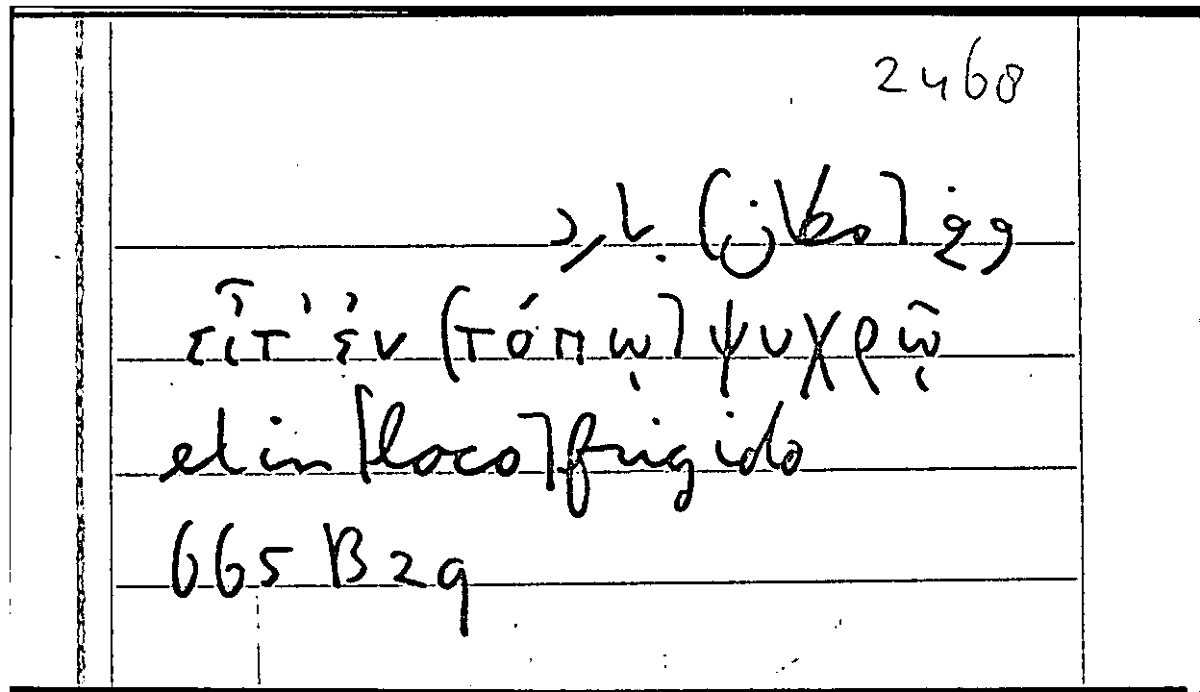 2468
وفي [مكان] بارد
εἶτ' ἐν [τόπῳ] ψυχρῷ
et in [loco] frigido
665 B 29